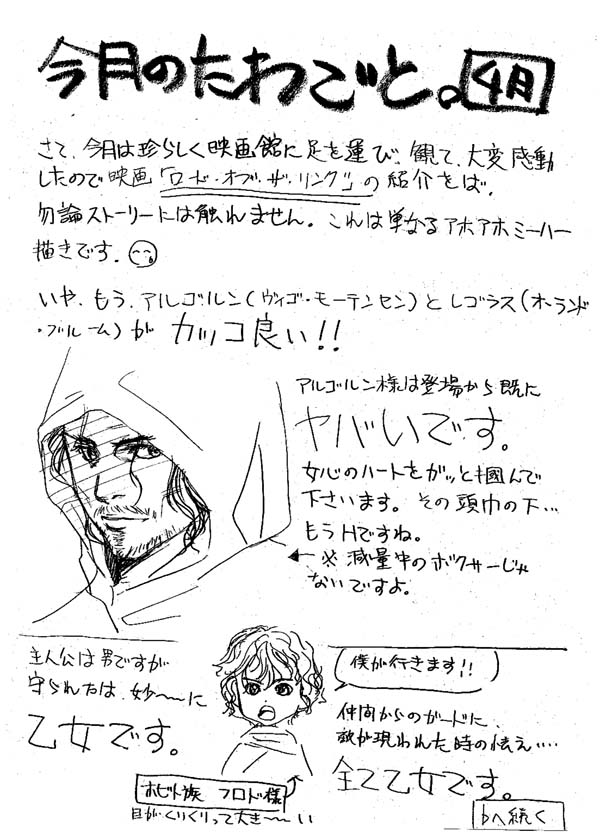 今月のたわごと。4月
さて、今月は珍らしく映画館に足を運び、観て、大変感動
したので映画「ロード・オブ・ザ・リング」の紹介をば。
勿論ストーリーには触れません。これは単なるアホアホミーハー
描きです。
いや、もう、アルゴルン(ヴィゴ・モーテンセン)とレゴラス(オーランド
・ブルーム)が カッコ良い!!
アルゴルン様は登場から既に
ヤバいです。
女心のハートをガッと掴んで
下さいます。その頭巾の下…
もうHですね。
←※減量中のボクサーじゃ
ないですよ。
主人公は男ですが
守られ方は、妙〜〜に
乙女です。
僕が行きます!!
仲間からのガードに、
敵が現われた時の怯え‥‥
全て乙女です。
ホビット族 フロド様
目がくりくりって大き〜〜い
bへ続く